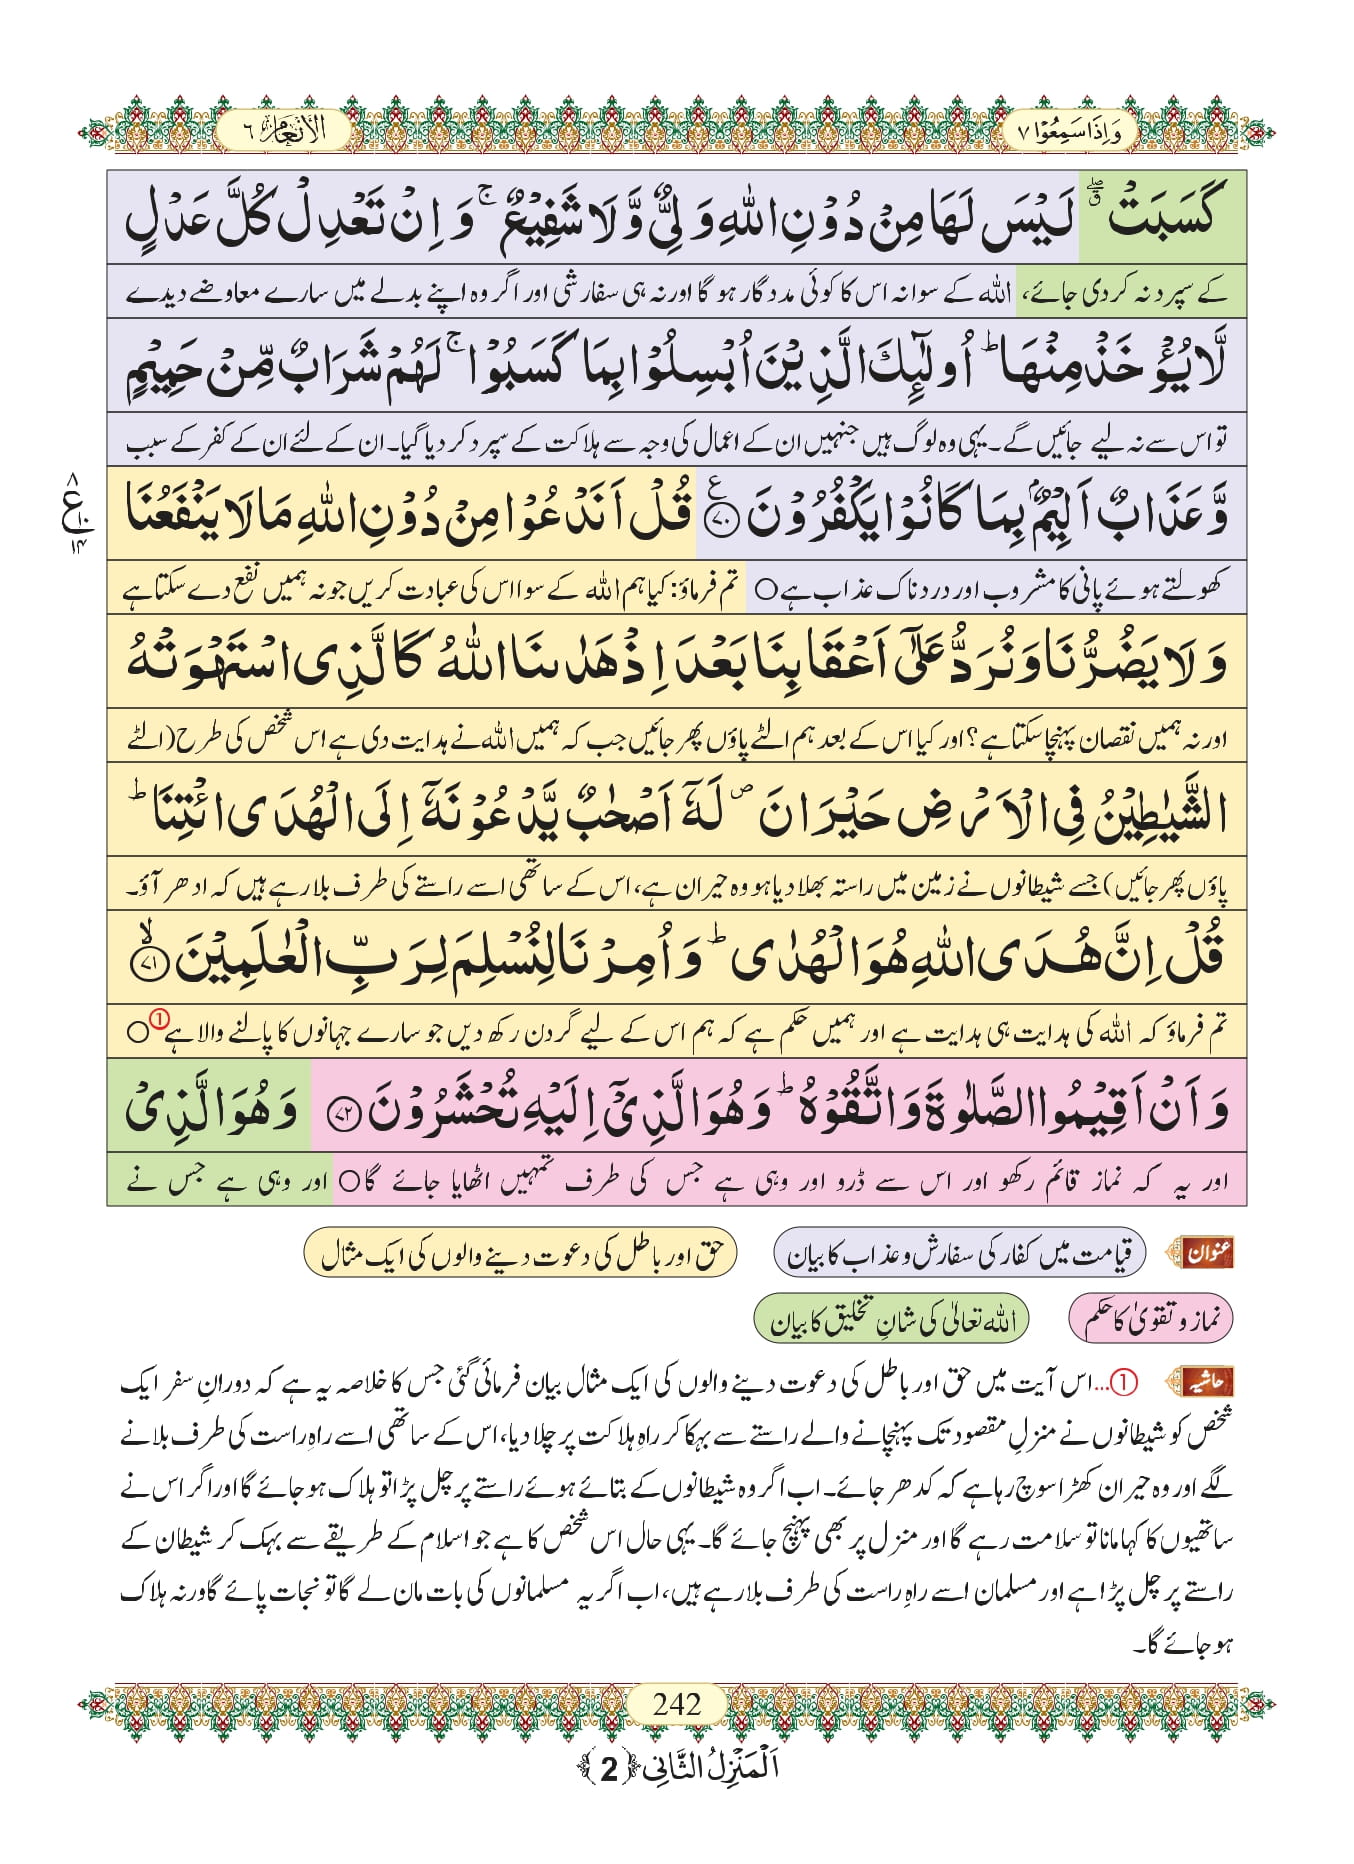 وَاِذَاسَمِعُوۡا ۷
الأنعام ٦
كَسَبَتۡ ۖۗ لَيۡسَ لَهَا مِنۡ دُوۡنِ اللّٰهِ وَلِىٌّ وَّلَا شَفِيۡعٌ ۚ وَ اِنۡ تَعۡدِلۡ كُلَّ عَدۡلٍ
کے سپرد نہ کردی جائے، اللہ کے سوا نہ اس کا کوئی مددگار ہوگا اور نہ ہی سفارشی اور اگر وہ اپنے بدلے میں سارے معاوضے دیدے
لَّا يُؤۡخَذۡ مِنۡهَا ؕ اُولٰٓئِكَ الَّذِيۡنَ اُبۡسِلُوۡا بِمَا كَسَبُوۡا ۚ لَهُمۡ شَرَابٌ مِّنۡ حَمِيۡمٍ
تو اس سے نہ لیے جائیں گے۔ یہی وہ لوگ ہیں جنہیں ان کے اعمال کی وجہ سے ہلاکت کے سپرد کر دیا گیا۔ ان کے لئے ان کے کفر کے سبب
وَّعَذَابٌ اَلِيۡمٌۢ بِمَا كَانُوۡا يَكۡفُرُوۡنَ ﴿۷۰﴾ ع قُلۡ اَنَدۡعُوۡا مِنۡ دُوۡنِ اللّٰهِ مَا لَا يَنۡفَعُنَا
۸
ع ۱۰
۱۴
کھولتے ہوئے پانی کا مشروب اور دردناک عذاب ہے ○ تم فرماؤ: کیا ہم اللہ کے سوا اس کی عبادت کریں جو نہ ہمیں نفع دے سکتا ہے
وَلَا يَضُرُّنَا وَنُرَدُّ عَلٰٓى اَعۡقَابِنَا بَعۡدَ اِذۡ هَدٰىنَا اللّٰهُ كَالَّذِى اسۡتَهۡوَتۡهُ
اور نہ ہمیں نقصان پہنچا سکتا ہے؟ اور کیا اس کے بعد ہم الٹے پاؤں پھر جائیں جب کہ ہمیں اللہ نے ہدایت دی ہے اس شخص کی طرح (الٹے
الشَّيٰطِيۡنُ فِى الۡاَرۡضِ حَيۡرَانَ ص لَهٗۤ اَصۡحٰبٌ يَّدۡعُوۡنَهٗۤ اِلَى الۡهُدَى ائۡتِنَا ؕ
پاؤں پھر جائیں) جسے شیطانوں نے زمین میں راستہ بھلا دیا ہو وہ حیران ہے، اس کے ساتھی اسے راستے کی طرف بلا رہے ہیں کہ ادھر آؤ۔
قُلۡ اِنَّ هُدَى اللّٰهِ هُوَ الۡهُدٰى ؕ وَاُمِرۡنَا لِنُسۡلِمَ لِرَبِّ الۡعٰلَمِيۡنَ ﴿۷۱﴾ ۙ
تم فرماؤ کہ اللہ کی ہدایت ہی ہدایت ہے اور ہمیں حکم ہے کہ ہم اس کے لیے گردن رکھ دیں جو سارے جہانوں کا پالنے والا ہے ① ○
وَاَنۡ اَقِيۡمُوا الصَّلٰوةَ وَاتَّقُوۡهُ ؕ وَهُوَ الَّذِىۡۤ اِلَيۡهِ تُحۡشَرُوۡنَ ﴿۷۲﴾ وَهُوَ الَّذِىۡ
اور یہ کہ نماز قائم رکھو اور اس سے ڈرو اور وہی ہے جس کی طرف تمہیں اٹھایا جائے گا ○ اور وہی ہے جس نے
عنوان قیامت میں کفار کی سفارش و عذاب کا بیان حق اور باطل کی دعوت دینے والوں کی ایک مثال
نماز و تقویٰ کا حکم اللہ تعالیٰ کی شانِ تخلیق کا بیان
حاشیہ ①...اس آیت میں حق اور باطل کی دعوت دینے والوں کی ایک مثال بیان فرمائی گئی جس کا خلاصہ یہ ہے کہ دورانِ سفر ایک
شخص کو شیطانوں نے منزلِ مقصود تک پہنچانے والے راستے سے بہکا کر راہِ ہلاکت پر چلا دیا، اس کے ساتھی اسے راہِ راست کی طرف بلانے
لگے اور وہ حیران کھڑا سوچ رہا ہے کہ کدھر جائے۔ اب اگر وہ شیطانوں کے بتائے ہوئے راستے پر چل پڑا تو ہلاک ہو جائے گا اور اگر اس نے
ساتھیوں کا کہا مانا تو سلامت رہے گا اور منزل پر بھی پہنچ جائے گا۔ یہی حال اس شخص کا ہے جو اسلام کے طریقے سے بہک کر شیطان کے
راستے پر چل پڑا ہے اور مسلمان اسے راہِ راست کی طرف بلا رہے ہیں، اب اگر یہ مسلمانوں کی بات مان لے گا تو نجات پائے گا ورنہ ہلاک
ہو جائے گا۔
242
اَلۡمَنۡزِلُ الثَّانِی ﴿2﴾